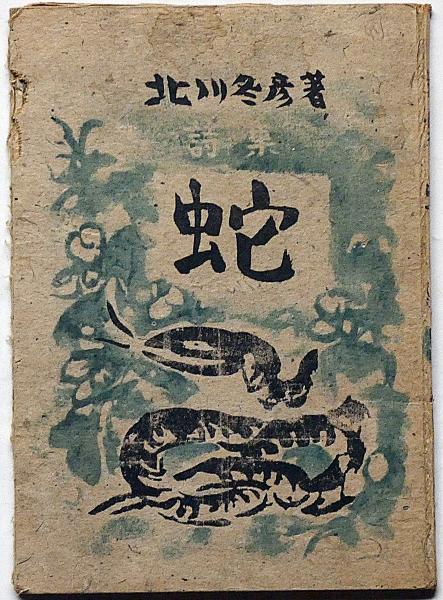 北川冬彦著
詩集
蛇